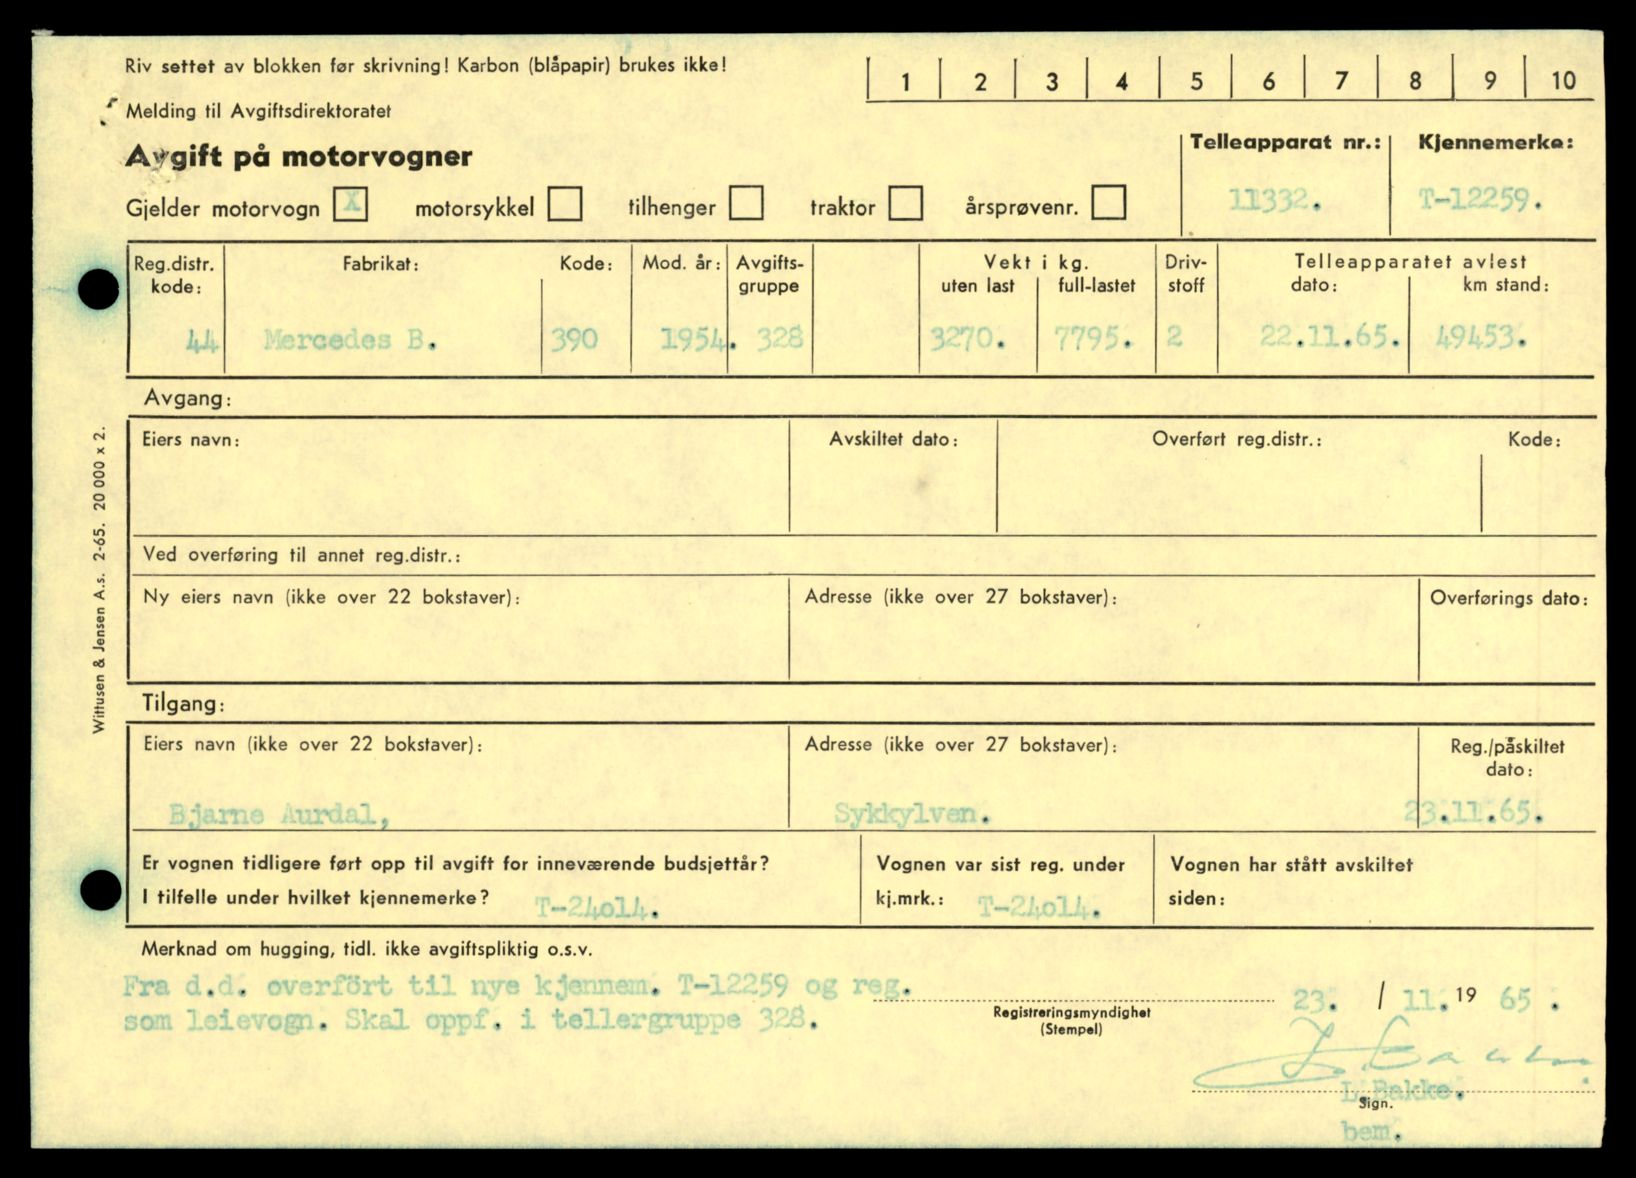 Riv settet av blokken før skrivning! Karbon (blåpapir) brukes ikke!
1 2 3 4 5 6 7 8 9 10
Melding til Avgiftsdirektoratet
Avgift på motorvogner
Telleapparat nr.: Kjennemerke:
11332. T-12259.
Gjelder motorvogn X motorsykkel tilhenger traktor årsprøvenr.
Reg.distr. kode: Fabrikat: Kode: Mod. år: Avgifts-gruppe Vekt i kg. uten last full-lastet Driv-stoff Telleapparatet avlest dato: km stand:
44 Mercedes B. 390 1954. 328 3270. 7795. 2 22.11.65. 49453.
Avgang:
Eiers navn: Avskiltet dato: Overført reg.distr.: Kode:
Ved overføring til annet reg.distr.:
Ny eiers navn (ikke over 22 bokstaver): Adresse (ikke over 27 bokstaver): Overførings dato:
Tilgang:
Eiers navn (ikke over 22 bokstaver): Adresse (ikke over 27 bokstaver): Reg./påskiltet dato:
Bjarne Aurdal, Sykkylven. 23.11.65.
Er vognen tidligere ført opp til avgift for inneværende budsjettår? Vognen var sist reg. under Vognen har stått avskiltet
I tilfelle under hvilket kjennemerke? T-24o14. kj.mrk.: T-24o14. siden:
Merknad om hugging, tidl. ikke avgiftspliktig o.s.v.
Fra d.d. overfört til nye kjennem. T-12259 og reg.
som leievogn. Skal oppf. i tellergruppe 328.
23. / 11. 19 65.
Registreringsmyndighet
(Stempel)
L. Bakke
L.Bakke.
Sign.
bem.
Wittusen & Jensen A.s. 2-65. 20 000 x 2.